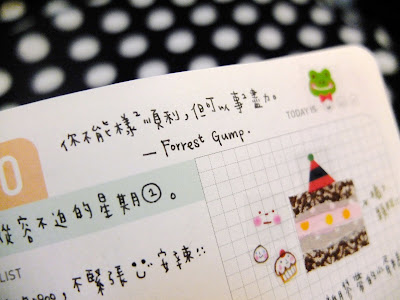 你不能樣²順利，但可以事²盡力。
— Forrest Gump.
TODAY IS
0
從容不迫的星期①。
LIST
不緊張 安辣!!